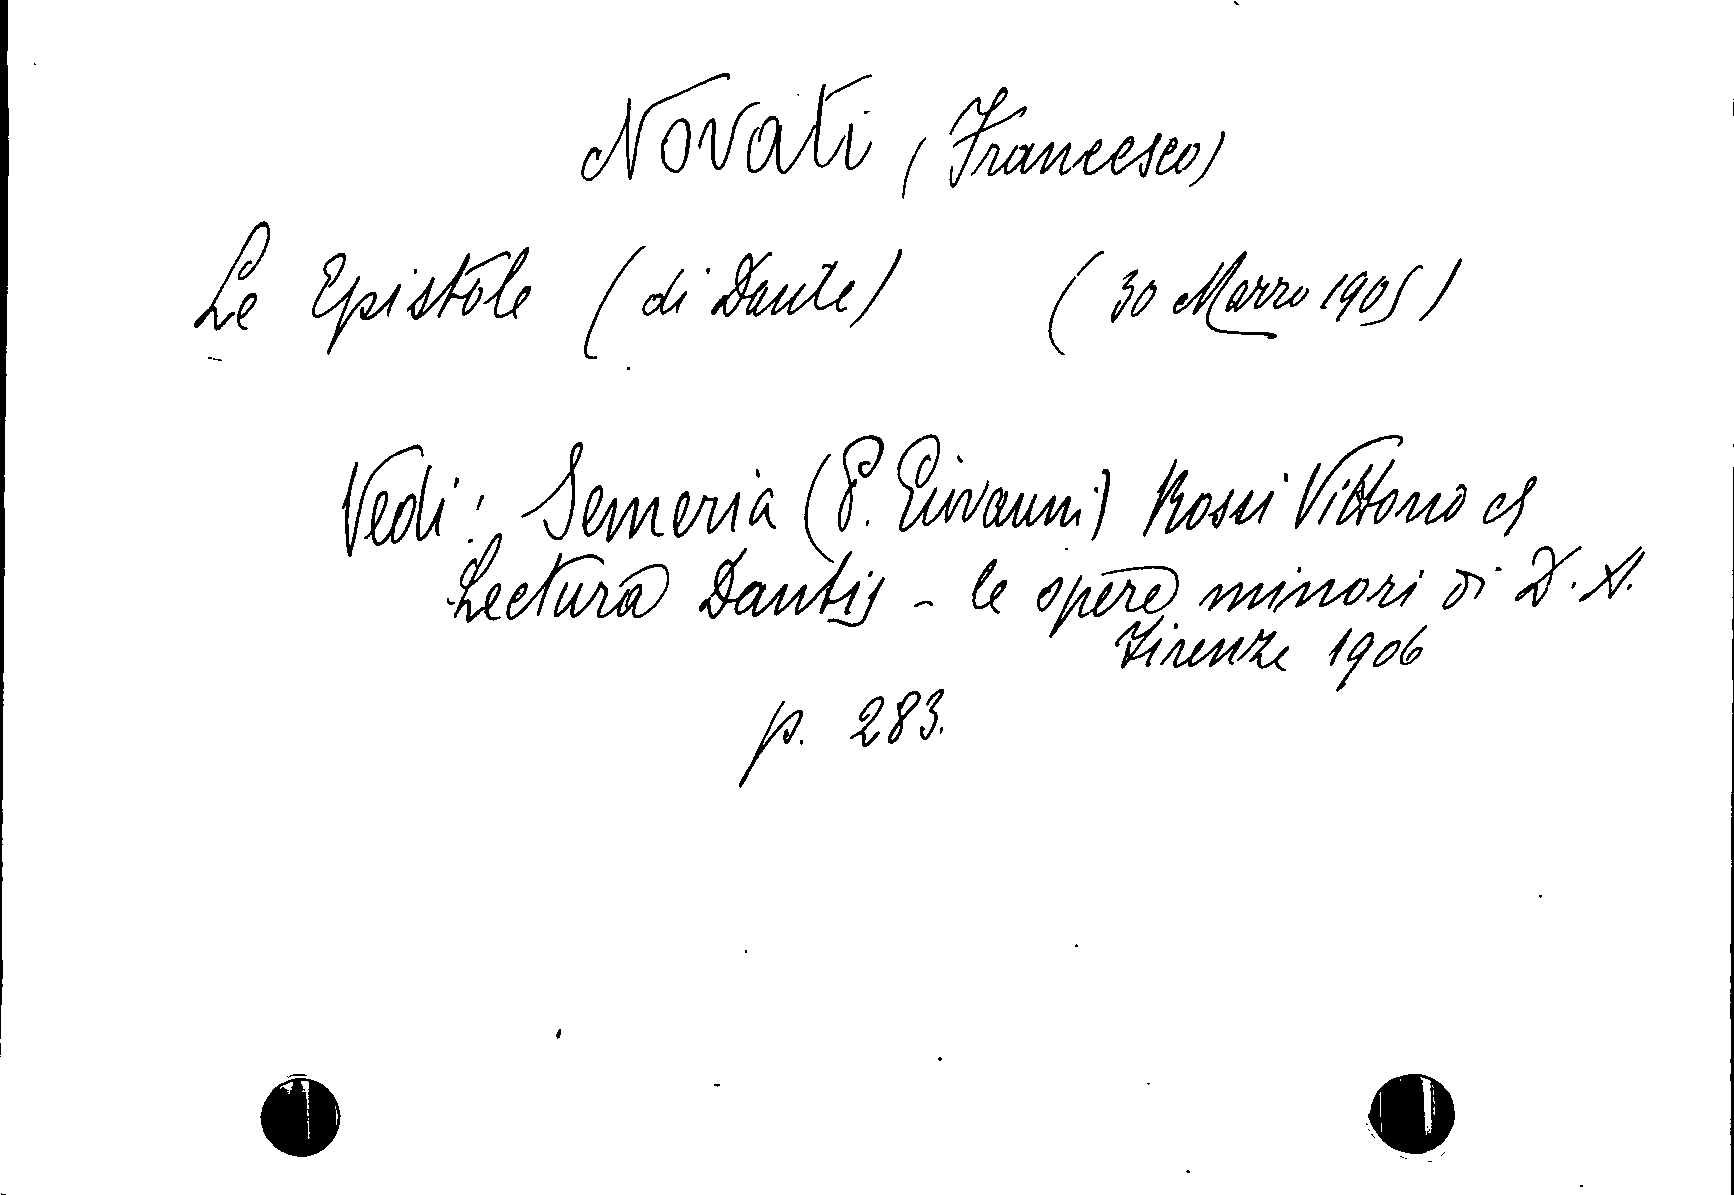 Novati (Francesco)
Le Epistole (di Dante) (30 Marzo 1905)
Vedi: Semeria (P. Giovanni) Rossi Vittorio
Lectura Dantis - le opere minori di D. A.
Firenze 1906
p. 283.